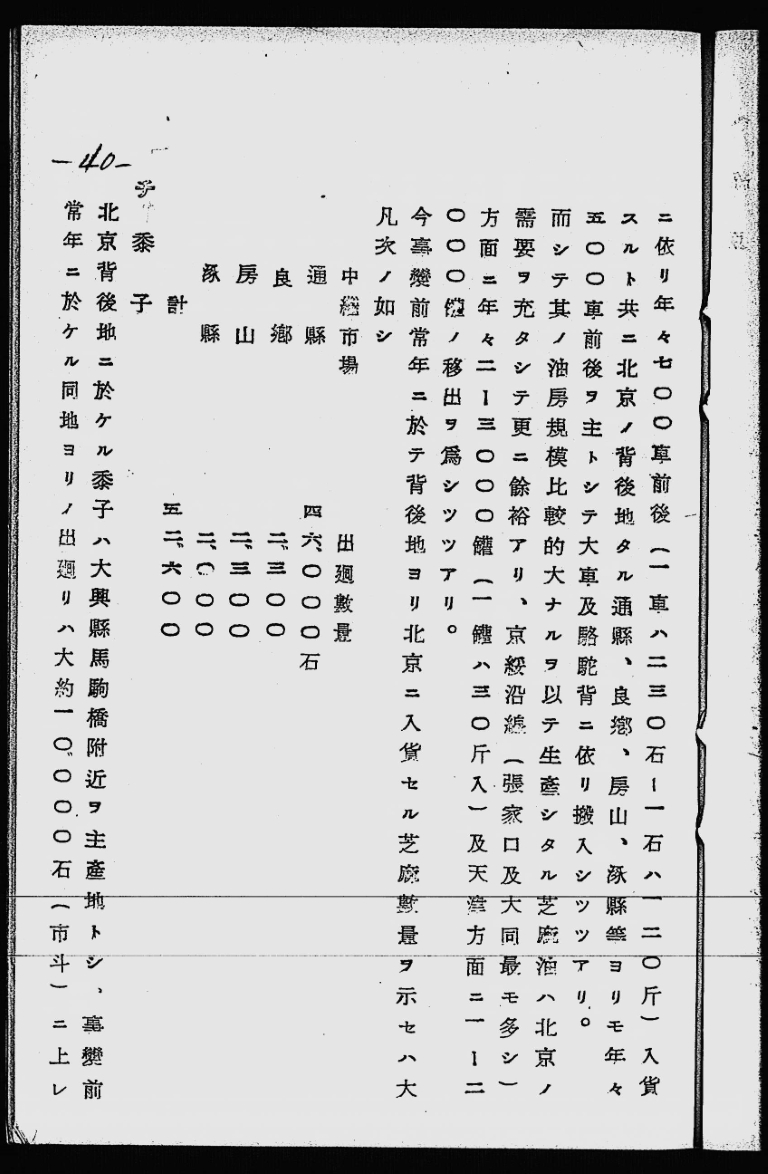 ニ依リ年々七〇〇車前後（一車ハ二三〇石ー一石ハ一二〇斤）入貨
スルト共ニ北京ノ背後地タル通縣、良鄕、房山、涿縣等ヨリモ年々
五〇〇車前後ヲ主トシテ大車及駱駝背ニ依リ搬入シツツアリ。
而シテ其ノ油房規模比較的大ナルヲ以テ生產シタル芝麻油ハ北京ノ
需要ヲ充タシテ更ニ餘裕アリ、京綏沿線（張家口及大同最モ多シ）
方面ニ年々二ー三〇〇〇罐（一罐ハ三〇斤入）及天津方面ニ一ー二
〇〇〇罐ノ移出ヲ爲シツツアリ。
今事變前常年ニ於テ背後地ヨリ北京ニ入貨セル芝麻數量ヲ示セハ大
凡次ノ如シ
中繼市場 出廻數量
通縣 四六、〇〇〇石
良鄕 二、三〇〇
房山 二、三〇〇
涿縣 二、〇〇〇
計 五二、六〇〇
子 黍子
北京背後地ニ於ケル黍子ハ大興縣馬駒橋附近ヲ主產地トシ、事變前
常年ニ於ケル同地ヨリノ出廻リハ大約一〇、〇〇〇石（市斗）ニ上レ
—40—